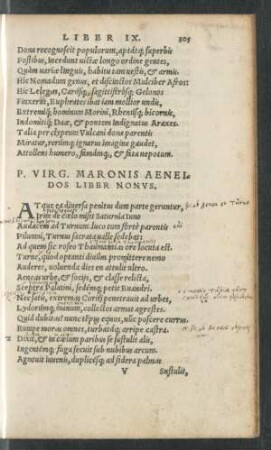 LIBER IX.
305
Dona recognoscit populorum, aptatq; superbis
Postibus, incedunt uictæ longo ordine gentes,
Quàm uariæ linguis, habitu tam uestis, & armis.
Hic Nomadum genus, et discinctos Mulciber Afros:
Hic Lelegas, Carasq;, sagittiferosq; Gelonos
Finxerat, Euphrates ibat iam mollior undis,
Extremiq; hominum Morini, Rhenusq; bicornis,
Indomitiq; Dahæ, & pontem indignatus Araxes.
Talia per clypeum Vulcani dona parentis
Miratur, rerumq; ignarus imagine gaudet,
Attollens humero, famamq;, & fata nepotum.
P. VIRG. MARONIS AENEI-
DOS LIBER NONVS.
ATque ea diuersa penitus dum parte geruntur,
Irim de cælo misit Saturnia Iuno
Audacem ad Turnum. luco tum fortè parentis
Pilumni, Turnus sacrata ualle sedebat:
Ad quem sic roseo Thaumantias ore locuta est.
Turne, quod optanti diuûm promittere nemo
Auderet, uoluenda dies en attulit ultro.
Aeneas urbe, & socijs, & classe relicta,
Sceptra Palatini, sedemq; petit Euandri.
Nec satis, extremas Coriti penetrauit ad urbes,
Lydorumq; manum, collectos armat agrestes.
Quid dubitas? nunc tempus equos, nūc poscere currus.
Rumpe moras omnes, turbataq; arripe castra.
Dixit, & in cælum paribus se sustulit alis,
Ingentemq; fuga secuit sub nubibus arcum.
Agnouit iuuenis, duplicesq; ad sidera palmas
V
Sustulit,